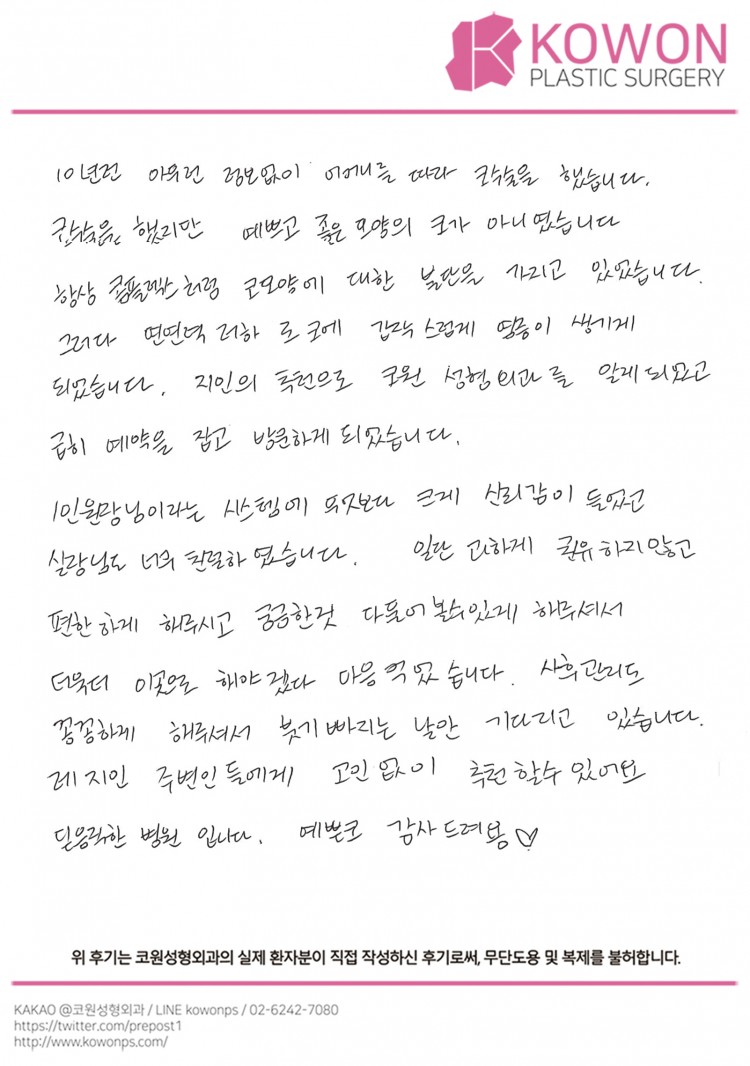 KOWON
PLASTIC SURGERY
10년전 아무런 정보없이 어머니를 따라 코수술을 했습니다.
코수술은 했지만 예쁘고 좋은 모양의 코가 아니였습니다
항상 콤플렉스처럼 코모양에 대한 불만을 가지고 있었습니다.
그러다 면연력 저하로 코에 갑작스럽게 염증이 생기게
되었습니다. 지인의 추천으로 코원 성형외과를 알게되었고
급히 예약을 잡고 방문하게 되었습니다.
1인원장님이라는 시스템에 무엇보다 크게 신뢰감이 들었고
실장님도 너무 친절하였습니다. 일단 과하게 권유하지않고
편한하게 해주시고 궁금한것 다물어볼수있게 해주셔서
더욱더 이곳으로 해야겠다 마음먹었습니다. 사후관리도
꼼꼼하게 해주셔서 붓기빠지는 날만 기다리고 있습니다.
제 지인 주변인들에게 고민없이 추천할수있어요
믿음직한 병원 입니다. 예쁜코 감사드려용♡
위 후기는 코원성형외과의 실제 환자분이 직접 작성하신 후기로써, 무단도용 및 복제를 불허합니다.
KAKAO @코원성형외과 / LINE kowonps / 02-6242-7080
https://twitter.com/prepost1
http://www.kowonps.com/